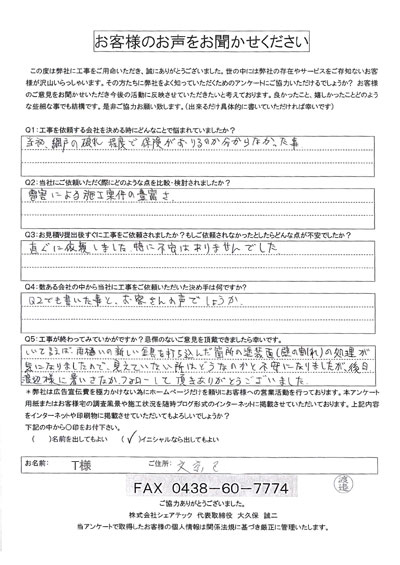 お客様のお声をお聞かせください
この度は弊社に工事をご用命いただき、誠にありがとうございました。世の中には弊社の存在やサービスをご存知ないお客
様が沢山いらっしゃいます。その方たちに弊社をよく知っていただくためのアンケートにご協力いただけるでしょうか? お客様
のご意見をお聞かせいただき今後の活動に反映させていただきたいと考えております。良かったこと、嬉しかったことどのよう
な些細な事でも結構です。是非ご協力お願い致します。(出来るだけ具体的に書いていただければ幸いです)
Q1:工事を依頼する会社を決める時にどんなことで悩まれていましたか?
当初、網戸の破れ程度で保険がおりるのか分からなかった事
Q2:当社にご依頼いただく際にどのような点を比較・検討されましたか?
雹害による施工案件の豊富さ
Q3:お見積り提出後すぐに工事をご依頼されましたか?もしご依頼されなかったとしたらどんな点が不安でしたか?
直ぐに依頼しました 特に不安はありませんでした
Q4:数ある会社の中から当社に工事をご依頼いただいた決め手は何ですか?
Q2でも書いた事と、お客さんの声でしょうか
Q5:工事が終わってみていかがですか?忌憚のないご意見を頂戴できましたら幸いです。
いて言えば、雨樋の新しい金具を打ち込んだ箇所の塗装面(壁の割れ)の処理が
気になりましたので、見えていない所はどうなのかと不安になりましたが、後日
渡辺様に暑いさなかフォローして頂きありがとうございました。
*弊社は広告宣伝費を極力かけない為にホームページだけを頼りにお客様への営業活動を行っております。本アンケート
用紙またはお客様宅の調査風景や施工状況を随時ブログ形式のインターネットに掲載させていただいております。上記内容
をインターネットや印刷物に掲載させていただいてもよろしいでしょうか?
下記の中から○印をお付下さい。
( )名前を出してもよい (✓)イニシャルなら出してもよい
お名前: T様 ご住所: 文京区
FAX 0438-60-7774
渡邉
ご協力ありがとうございました。
株式会社シェアテック 代表取締役 大久保 誠二
当アンケートで取得したお客様の個人情報は関係法規に基づき厳正に管理いたします。